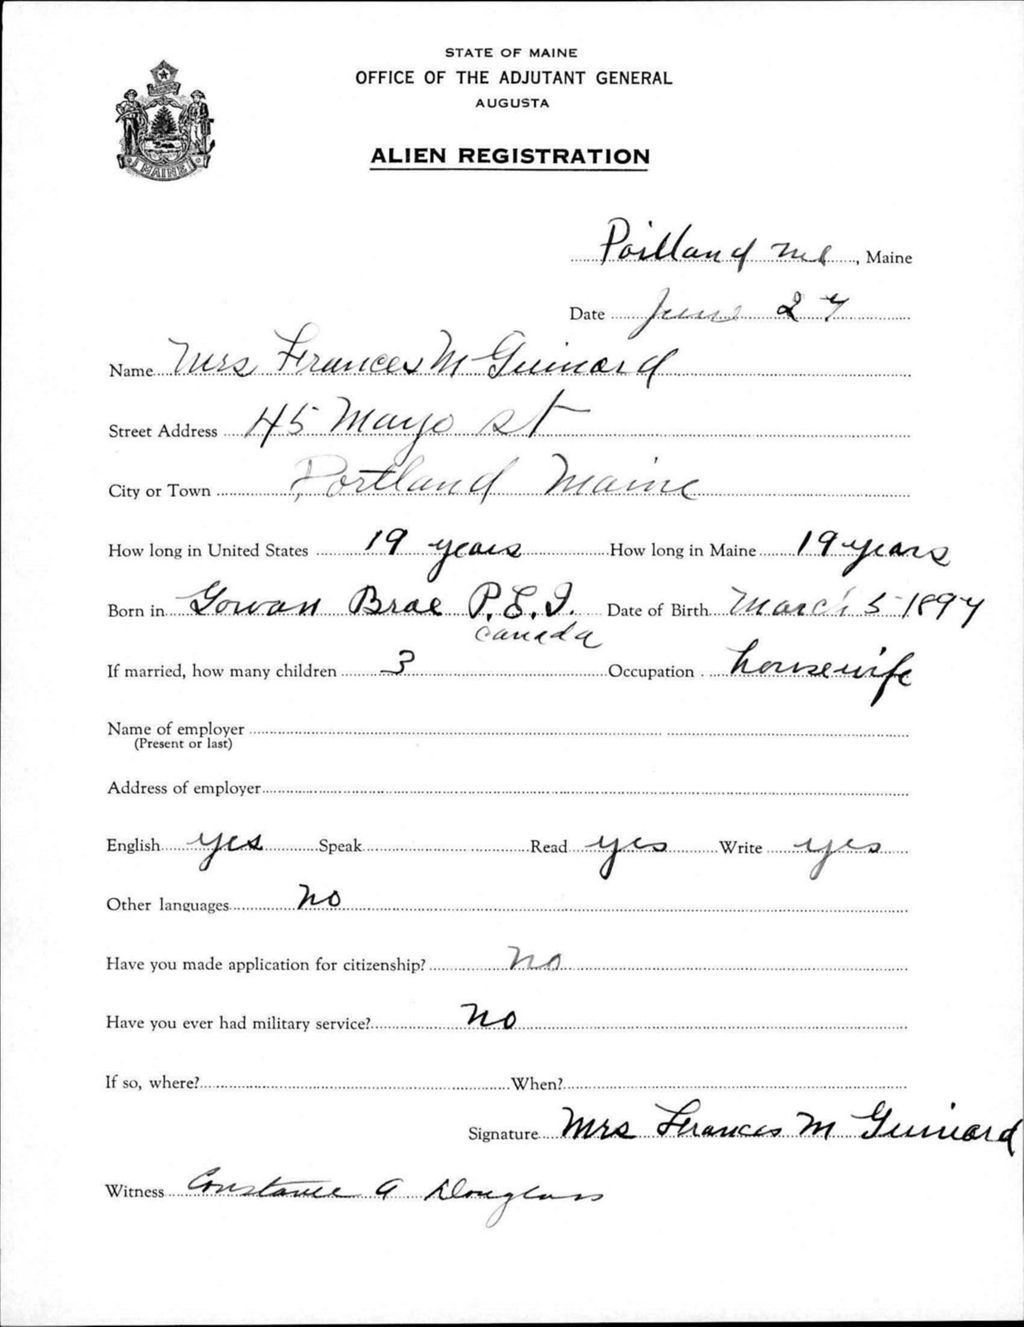 STATE OF MAINE
OFFICE OF THE ADJUTANT GENERAL
AUGUSTA
ALIEN REGISTRATION
MAINE
Portland Me, Maine
Date June 27
Name Mrs Frances M Guinard
Street Address 45 Mayo st
City or Town Portland Maine
How long in United States 19 years How long in Maine 19 years
Born in Gowan Brae P.E.I. Date of Birth March 5 1897
canada
If married, how many children 3 Occupation housewife
Name of employer
(Present or last)
Address of employer
English yes Speak Read yes Write yes
Other languages no
Have you made application for citizenship? no
Have you ever had military service? no
If so, where? When?
Signature Mrs Frances M Guinard
Witness Constance A Douglass